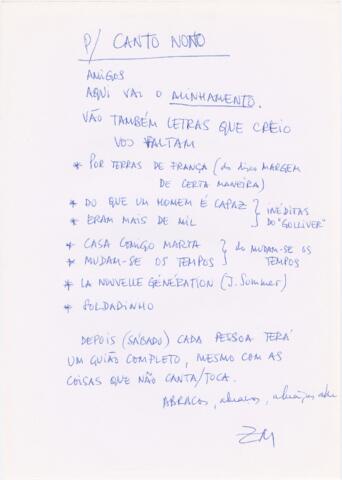 P/ CANTO NONO
AMIGOS
AQUI VAI O ALINHAMENTO.
VÃO TAMBÉM LETRAS QUE CREIO
VOS FALTAM
* POR TERRAS DE FRANÇA (do disco MARGEM
DE CERTA MANEIRA)
* DO QUE UM HOMEM É CAPAZ } INÉDITAS
* ERAM MAIS DE MIL } DO "GULLIVER"
* CASA COMIGO MARTA } do MUDAM-SE OS
* MUDAM-SE OS TEMPOS } TEMPOS
* LA NOUVELLE GÉNÉRATION (J. Sommer)
* SOLDADINHO
DEPOIS (SÁBADO) CADA PESSOA TERÁ
UM GUIÃO COMPLETO, MESMO COM AS
COISAS QUE NÃO CANTA/TOCA.
ABRAÇOS, abraços,
ZM